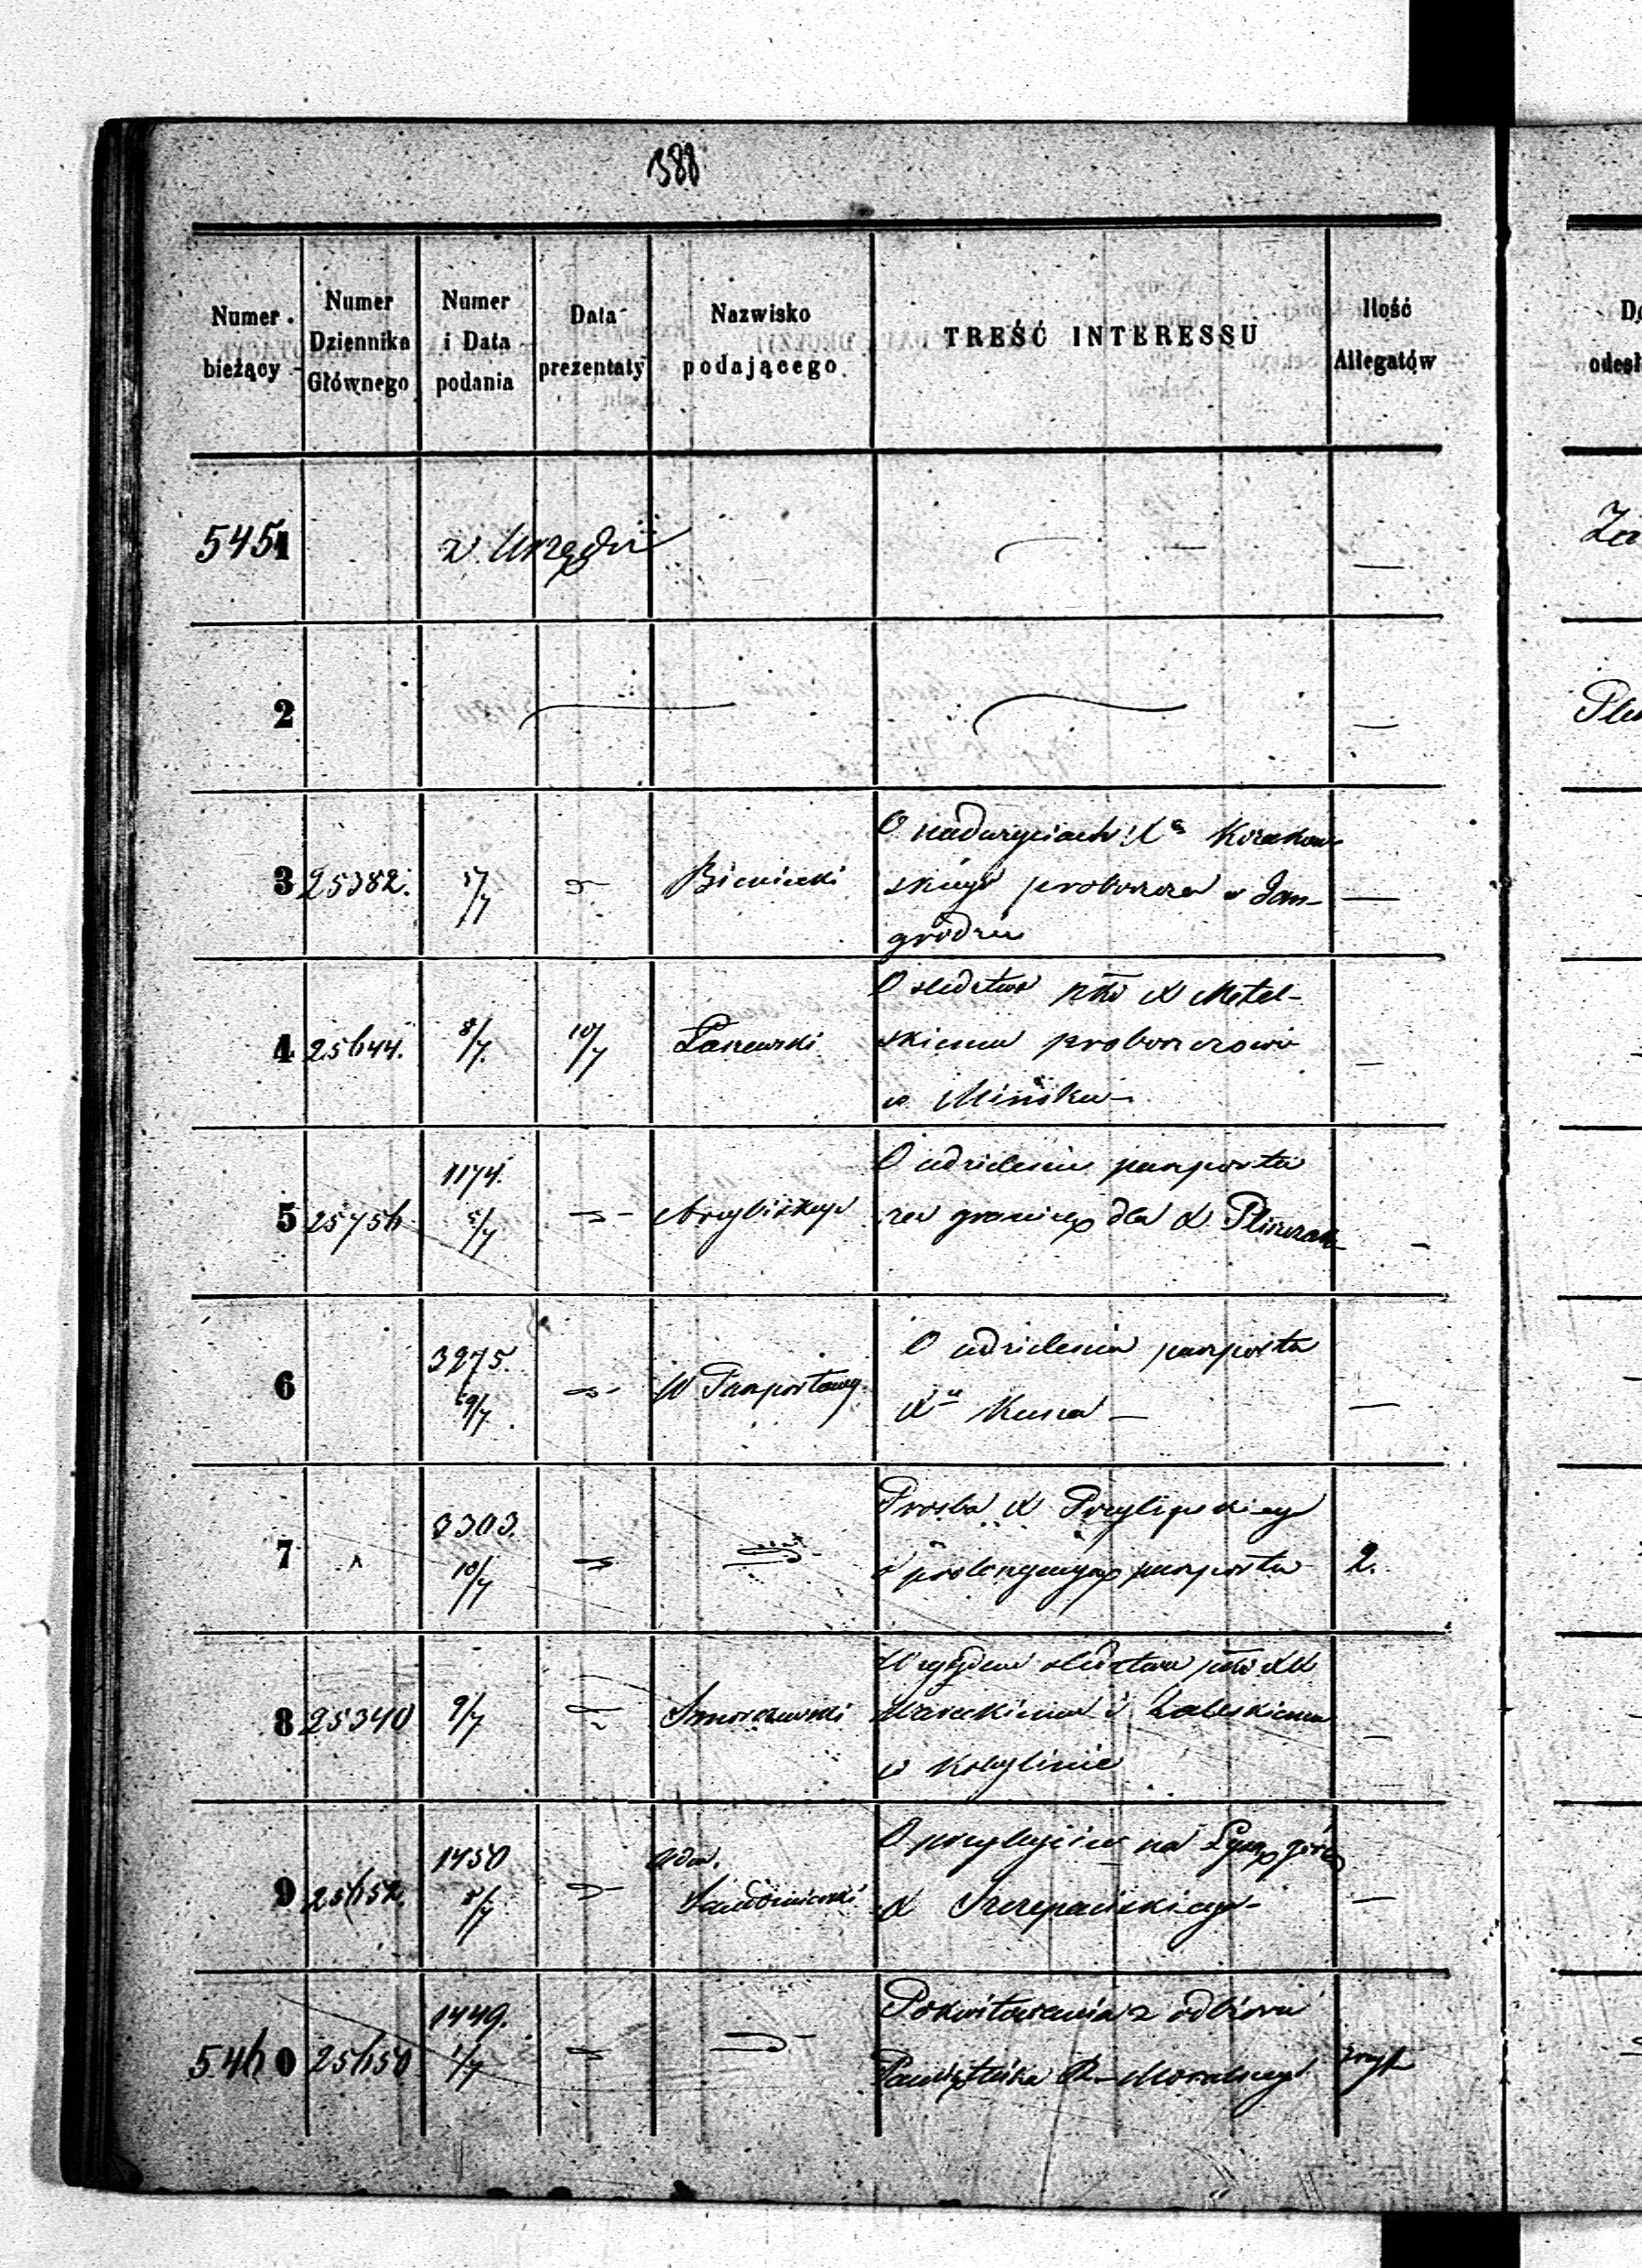 388
Numer bieżący
Numer Dziennika Głównego
Numer i Data podania
Data prezentaty
Nazwisko podającego
TREŚĆ INTERESSU
Ilość Allegatów
5451 z Urzędu — —
2 — — —
3 25382. 5/7 Bieniecki
O nadużyciach Xa
skiego proboszcza w Jan-
grodzie —
4 25644. 8/7. 10/7
O śledztwo ptko X Metel-
skiemu proboszczowi
w Mińsku — —
5 25756 1174. 5/7
O udzielenie paszportu
za granicę dla X —
6 3275. 9/7 W Paszportowy
O udzielenie paszportu
—
7 3303. 10/7
Prośba X Przylipskiego
o prolongacyą paszportu 2.
8 25340 9/7 Smorczewski
śledztwa ptko XX
i Zaleskiemu
w Kobylinie —
9 25652. 1450 5/7 Adm. Sandomierski
O przybyciu na Łysą górę
X Szczepańskiego — —
5460 25650 1449. 1/7
Pokwitowania z odbioru
Pamiętnika R. Moralnego
Za
Do
odesł